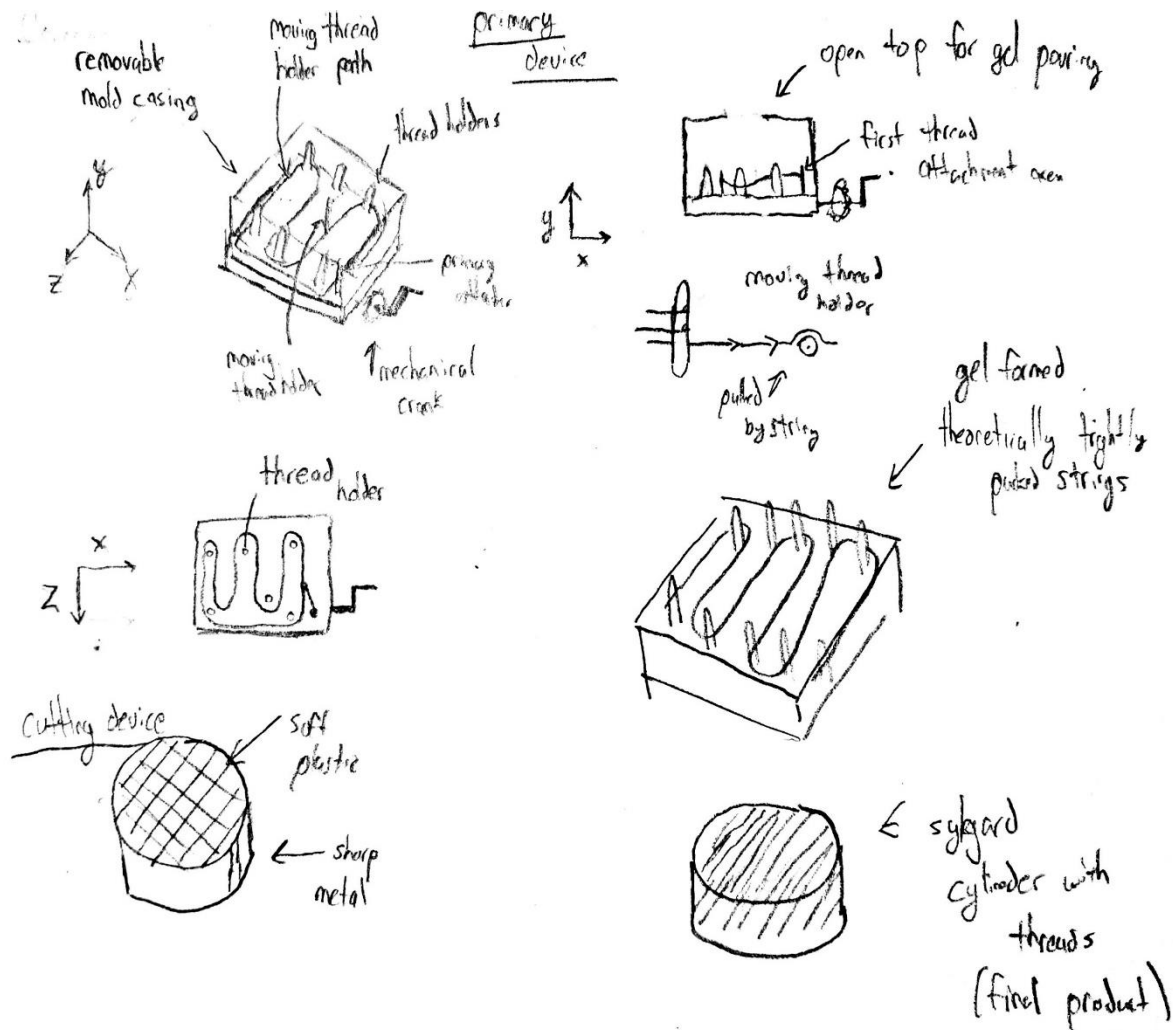 primary
device
removable
mold casing
moving thread
holder path
thread holders
y
z
x
primary
moving
thread holder
mechanical
crank
open top for gel pouring
first thread
attachment area
y
x
moving thread
holder
pulled
by string
gel formed
theoretically tightly
packed strings
thread
holder
x
z
cutting device
soft
plastic
sharp
metal
sylgard
cylinder with
threads
(final product)